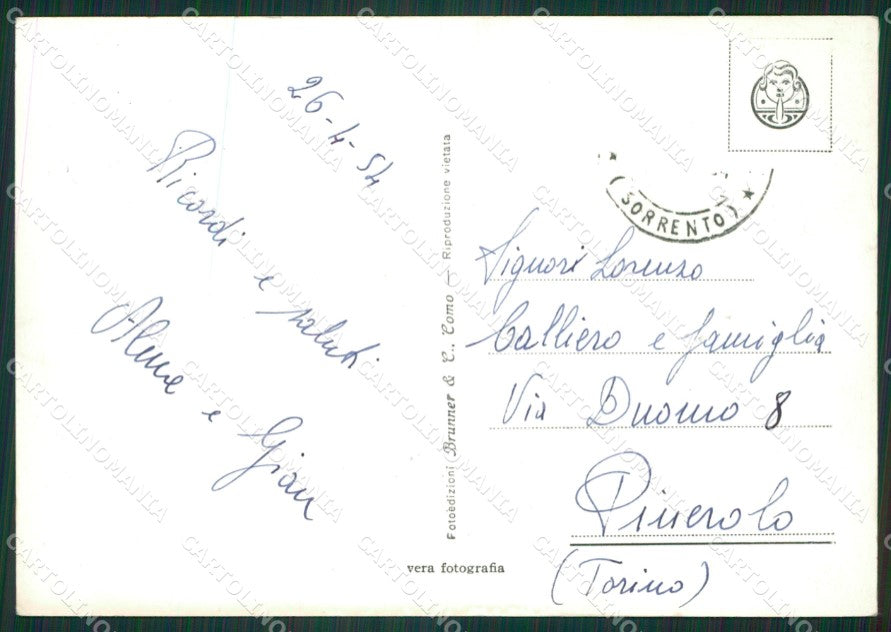 26-4-54
Ricordi e saluti
Alme e Gian
Fotoedizioni Brunner & C., Como — Riproduzione vietata
vera fotografia
(SORRENTO)
Signori Lorenzo
Calliero e famiglia
Via Duomo 8
Pinerolo
(Torino)
CARTOLINOMANIA